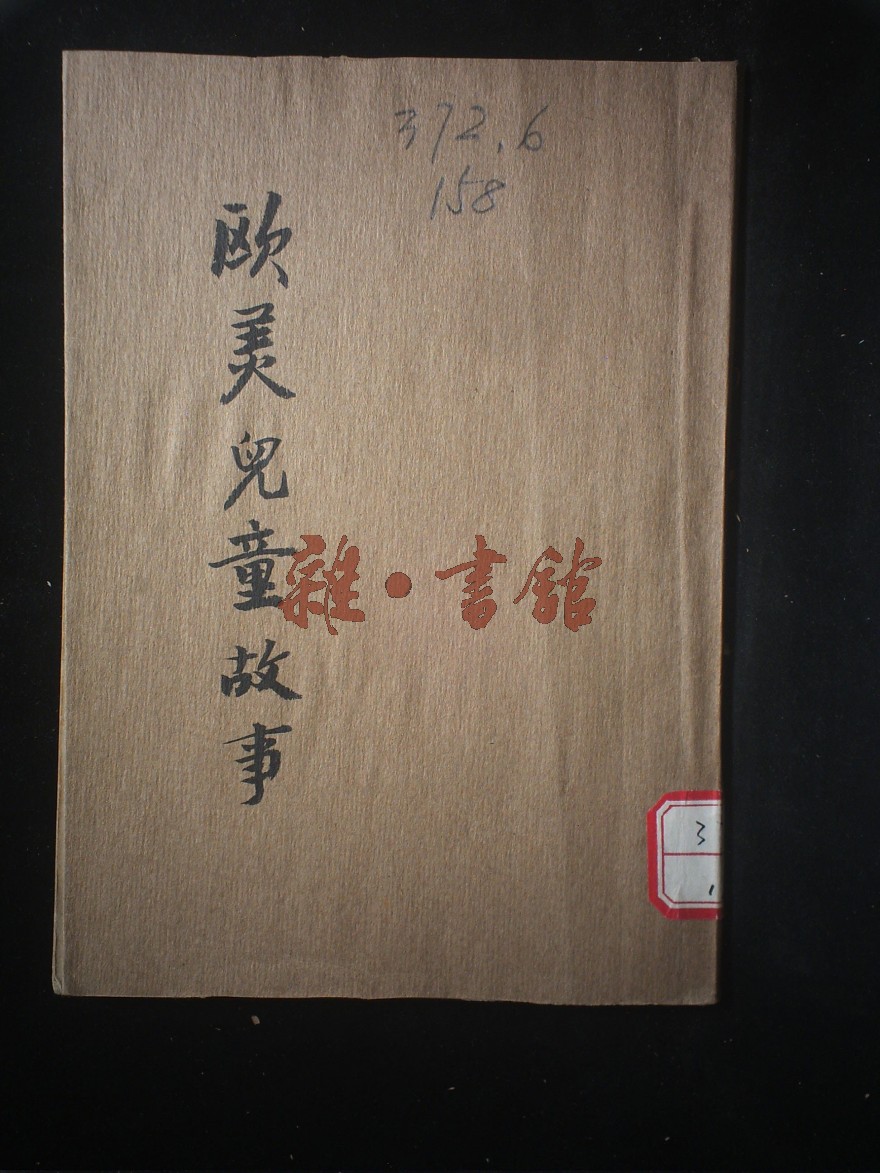 372.6
158
欧美兒童故事
雜·書館
3
1